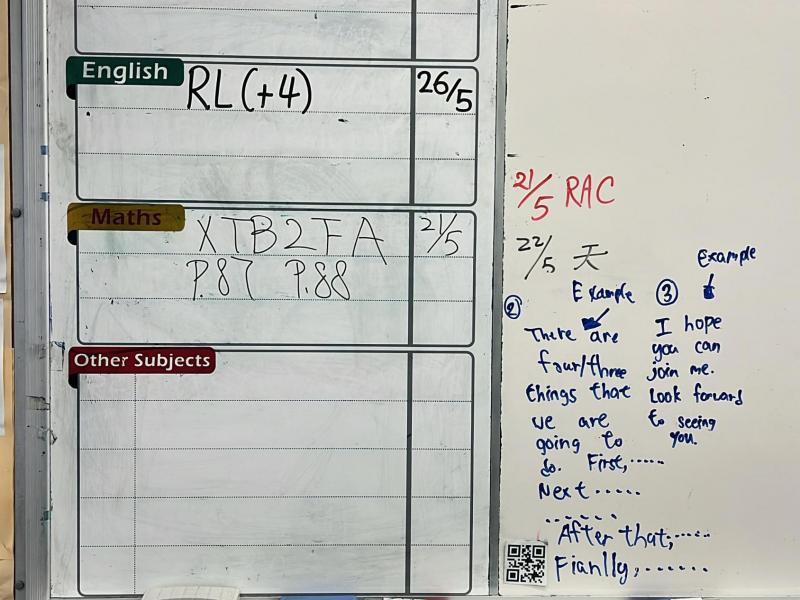 English
RL (+4) 26/5
Maths
XTB2FA 21/5
P.87 P.88
Other Subjects
21/5 RAC
22/5 天
② Example
There are
four/three
things that
we are
going to
do. First,......
Next .....
.......
After that,.....
Fianlly,.......
③ Example
I hope
you can
join me.
Look forward
to seeing
you.